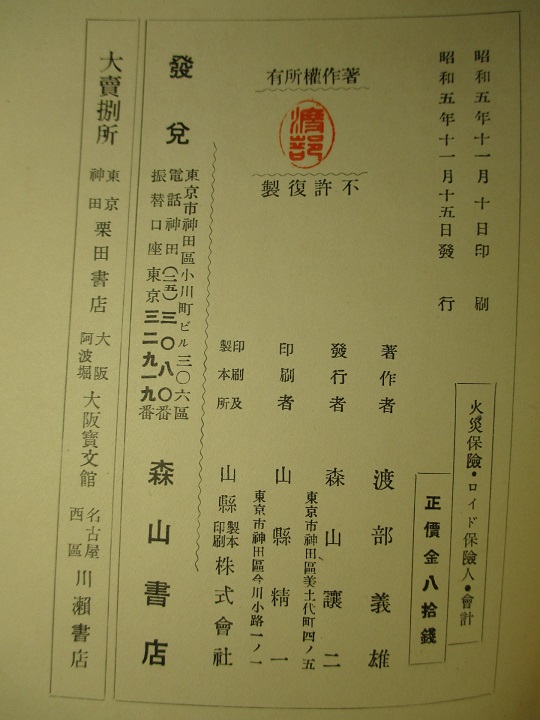 昭和五年十一月十日印刷
昭和五年十一月十五日發行
火災保險・ロイド保險人・會計
正價金八拾錢
著作權所有
渡部
不許復製
著作者 渡部義雄
發行者 森山讓二
東京市神田區美土代町四ノ五
印刷者 山縣精一
東京市神田區今川小路一ノ一
印刷及製本所 山縣製本印刷株式會社
發兌
東京市神田區小川町ビル三〇六區
電話神田(二五)三〇八〇番
振替口座東京三二九一九番
森山書店
大賣捌所
東京神田 栗田書店
大阪阿波堀 大阪寶文館
名古屋西區 川瀨書店